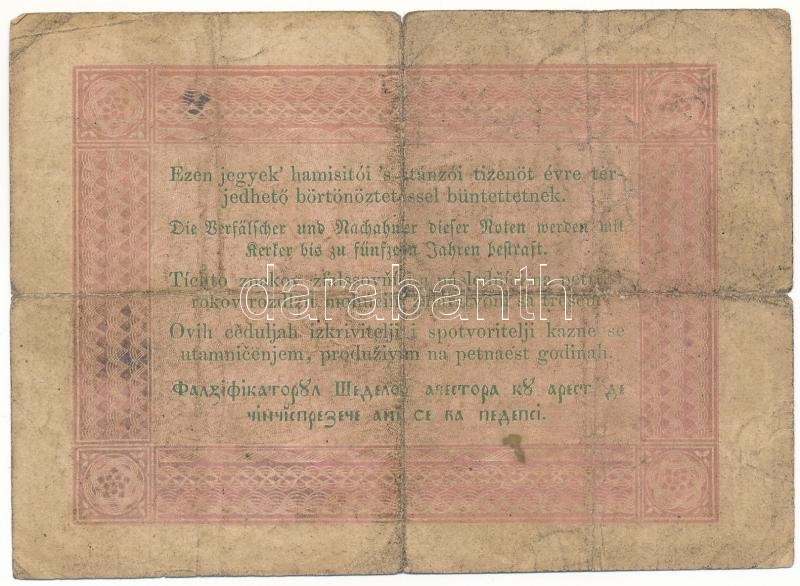 Ezen jegyek' hamisitói 's utánzói tizenöt évre ter-
jedhető börtönöztetéssel büntettetnek.
Die Verfälscher und Nachahmer dieser Noten werden mit
Kerker bis zu fünfzehn Jahren bestraft.
Tíchto znakov
rokov
darabanth
Ovih cěduljah izkrivitelji i spotvoritelji kazne se
utamničenjem, produživim na petnaest godinah.
Фалꙁіфікаторꙋл Шеделор ачестора кꙋ арест де
чінчіспреꙁече ані се ва педепсі.